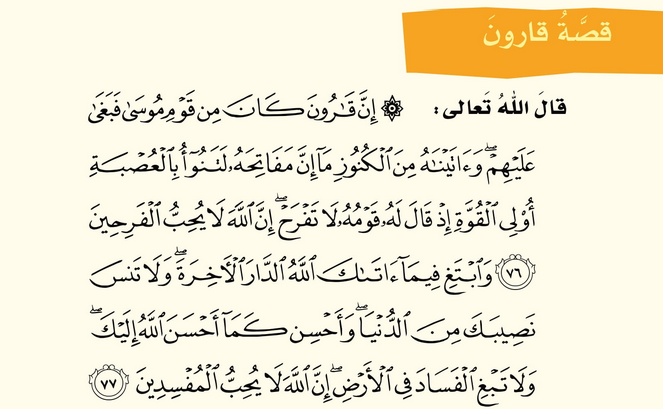 قصَّةُ قارونَ
قالَ اللهُ تَعالى: ۞ إِنَّ قَٰرُونَ كَانَ مِن قَوۡمِ مُوسَىٰ فَبَغَىٰ
عَلَيۡهِمۡۖ وَءَاتَيۡنَٰهُ مِنَ ٱلۡكُنُوزِ مَآ إِنَّ مَفَاتِحَهُۥ لَتَنُوٓأُ بِٱلۡعُصۡبَةِ
أُوْلِي ٱلۡقُوَّةِ إِذۡ قَالَ لَهُۥ قَوۡمُهُۥ لَا تَفۡرَحۡۖ إِنَّ ٱللَّهَ لَا يُحِبُّ ٱلۡفَرِحِينَ
٧٦ وَٱبۡتَغِ فِيمَآ ءَاتَىٰكَ ٱللَّهُ ٱلدَّارَ ٱلۡأٓخِرَةَۖ وَلَا تَنسَ
نَصِيبَكَ مِنَ ٱلدُّنۡيَاۖ وَأَحۡسِن كَمَآ أَحۡسَنَ ٱللَّهُ إِلَيۡكَۖ
وَلَا تَبۡغِ ٱلۡفَسَادَ فِي ٱلۡأَرۡضِۖ إِنَّ ٱللَّهَ لَا يُحِبُّ ٱلۡمُفۡسِدِينَ ٧٧